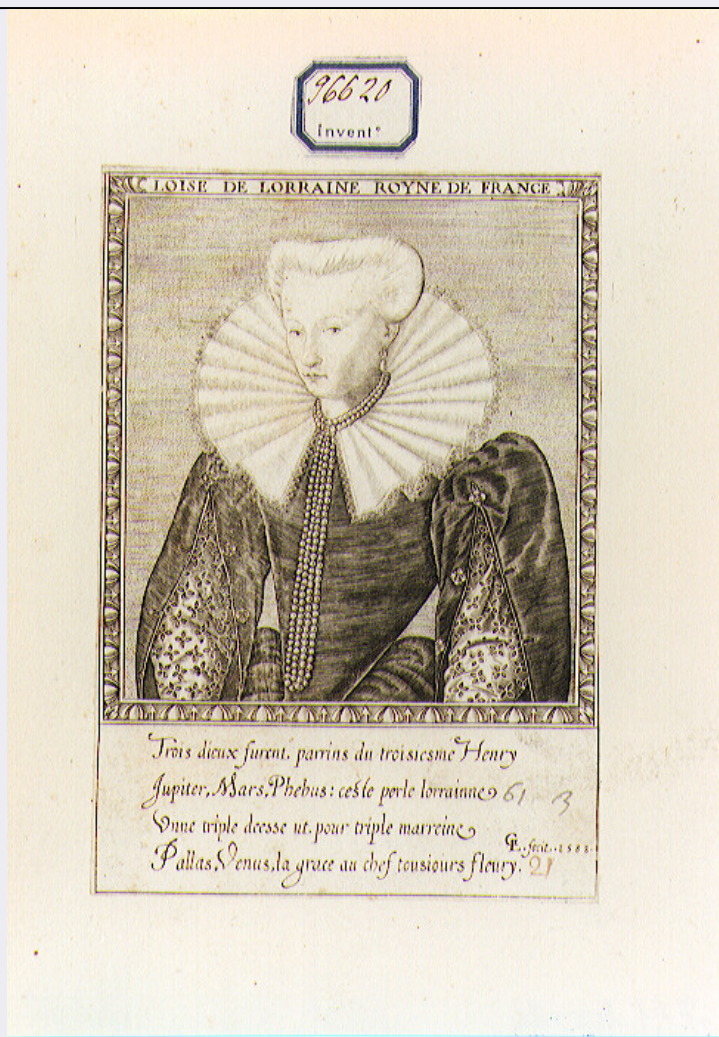 96620
Invent°
LOISE DE LORRAINE ROYNE DE FRANCE
Trois dieux furent parrins du troisiesme Henry
Jupiter, Mars, Phebus: ceste perle lorrainne 61 - 3
Vnne triple deesse ut pour triple marreine
fecit .1583.
Pallas, Venus, la grace au chef tousiours fleury. 21